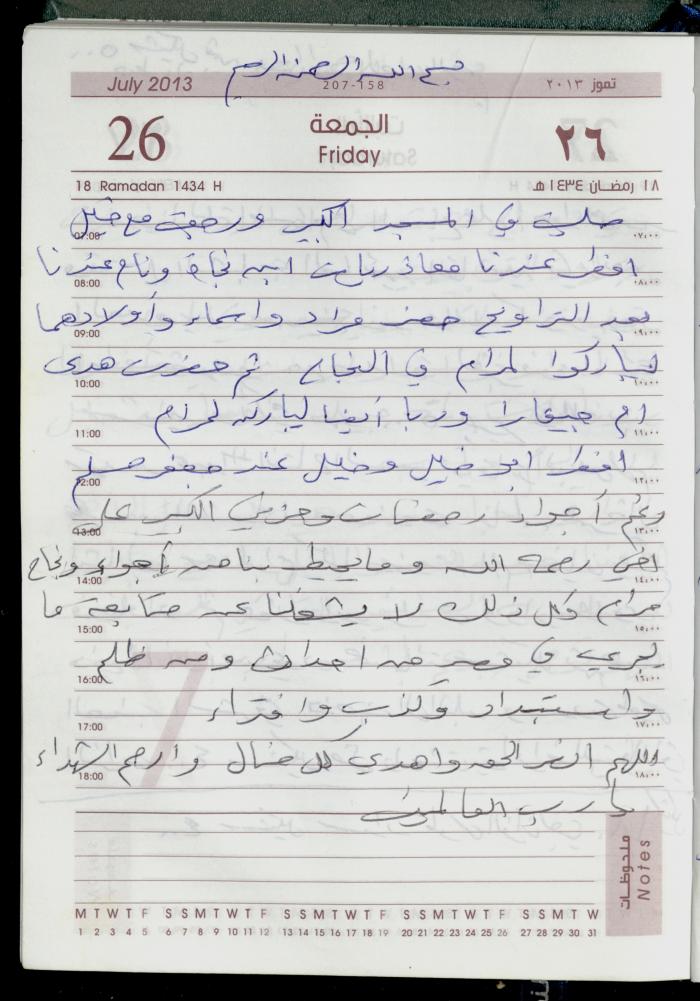 بسم الله الرحمن الرحيم
July 2013 207-158 تموز ٢٠١٣
26 الجمعة ٢٦
Friday
18 Ramadan 1434 H ١٨ رمضان ١٤٣٤ هـ
صليت في المسجد الكبير ورجعت مع خليل
07:00 ٠٧:٠٠
افطر عندنا معاذ ابن نجاة ونام عندنا
08:00 ٠٨:٠٠
بعد التراويح حضر مراد واسماء وأولادهما
09:00 ٠٩:٠٠
ليباركوا لمرام في النجاح ثم حضرت هدى
10:00 ١٠:٠٠
ام جيفارا وربا أيضا ليباركن لمرام
11:00 ١١:٠٠
افطر ابو خليل وخليل عند جعفر مسلم
12:00 ١٢:٠٠
رغم أجواء رمضان وحزني الكبير على
13:00 ١٣:٠٠
اخي رحمه الله وما يحيط بنا من أجواء ونجاح
14:00 ١٤:٠٠
مرام وكل ذلك لا يشغلنا عن متابعة ما
15:00 ١٥:٠٠
يجري في مصر من احداث ومن ظلم
16:00 ١٦:٠٠
واستبداد وكذب وافتراء
17:00 ١٧:٠٠
اللهم انصر الحق واهدي كل ضال وارحم الشهداء
18:00 ١٨:٠٠
يا رب العالمين
ملحوظات
Notes
M T W T F S S M T W T F S S M T W T F S S M T W T F S S M T W
1 2 3 4 5 6 7 8 9 10 11 12 13 14 15 16 17 18 19 20 21 22 23 24 25 26 27 28 29 30 31